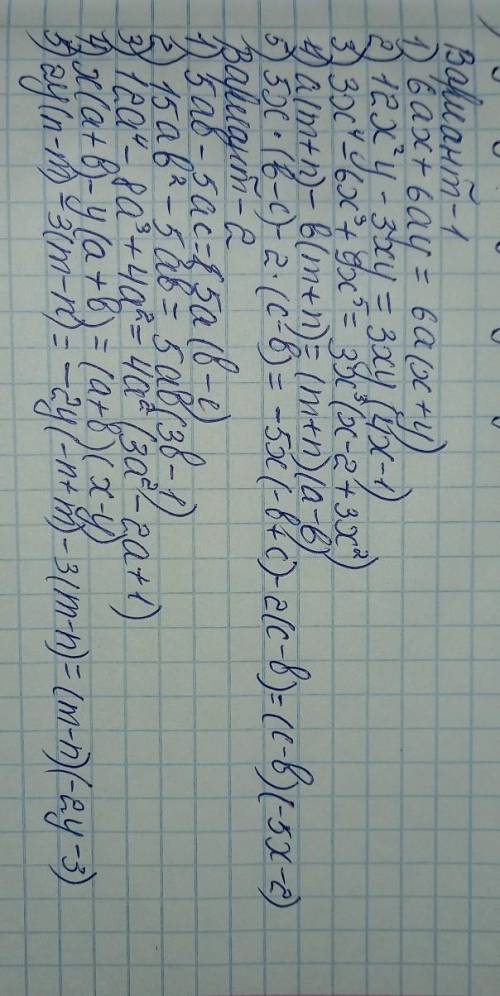 Вариант-1
1) 6ax+6ay=6a(x+y)
2) 12x²y-3xy=3xy(4x-1)
3) 3x⁴-6x³+9x⁵=3x³(x-2+3x²)
4) a(m+n)-в(m+n)=(m+n)(a-в)
5) 5x·(в-c)-2·(c-в)=-5x(-в+c)-2(c-в)=(c-в)(-5x-2)
Вариант-2
1) 5aв-5ac=5a(в-c)
2) 15aв²-5aв=5aв(3в-1)
3) 12a⁴-8a³+4a²=4a²(3a²-2a+1)
4) x(a+в)-y(a+в)=(a+в)(x-y)
5) 2y(n-m)-3(m-n)=-2y(-n+m)-3(m-n)=(m-n)(-2y-3)